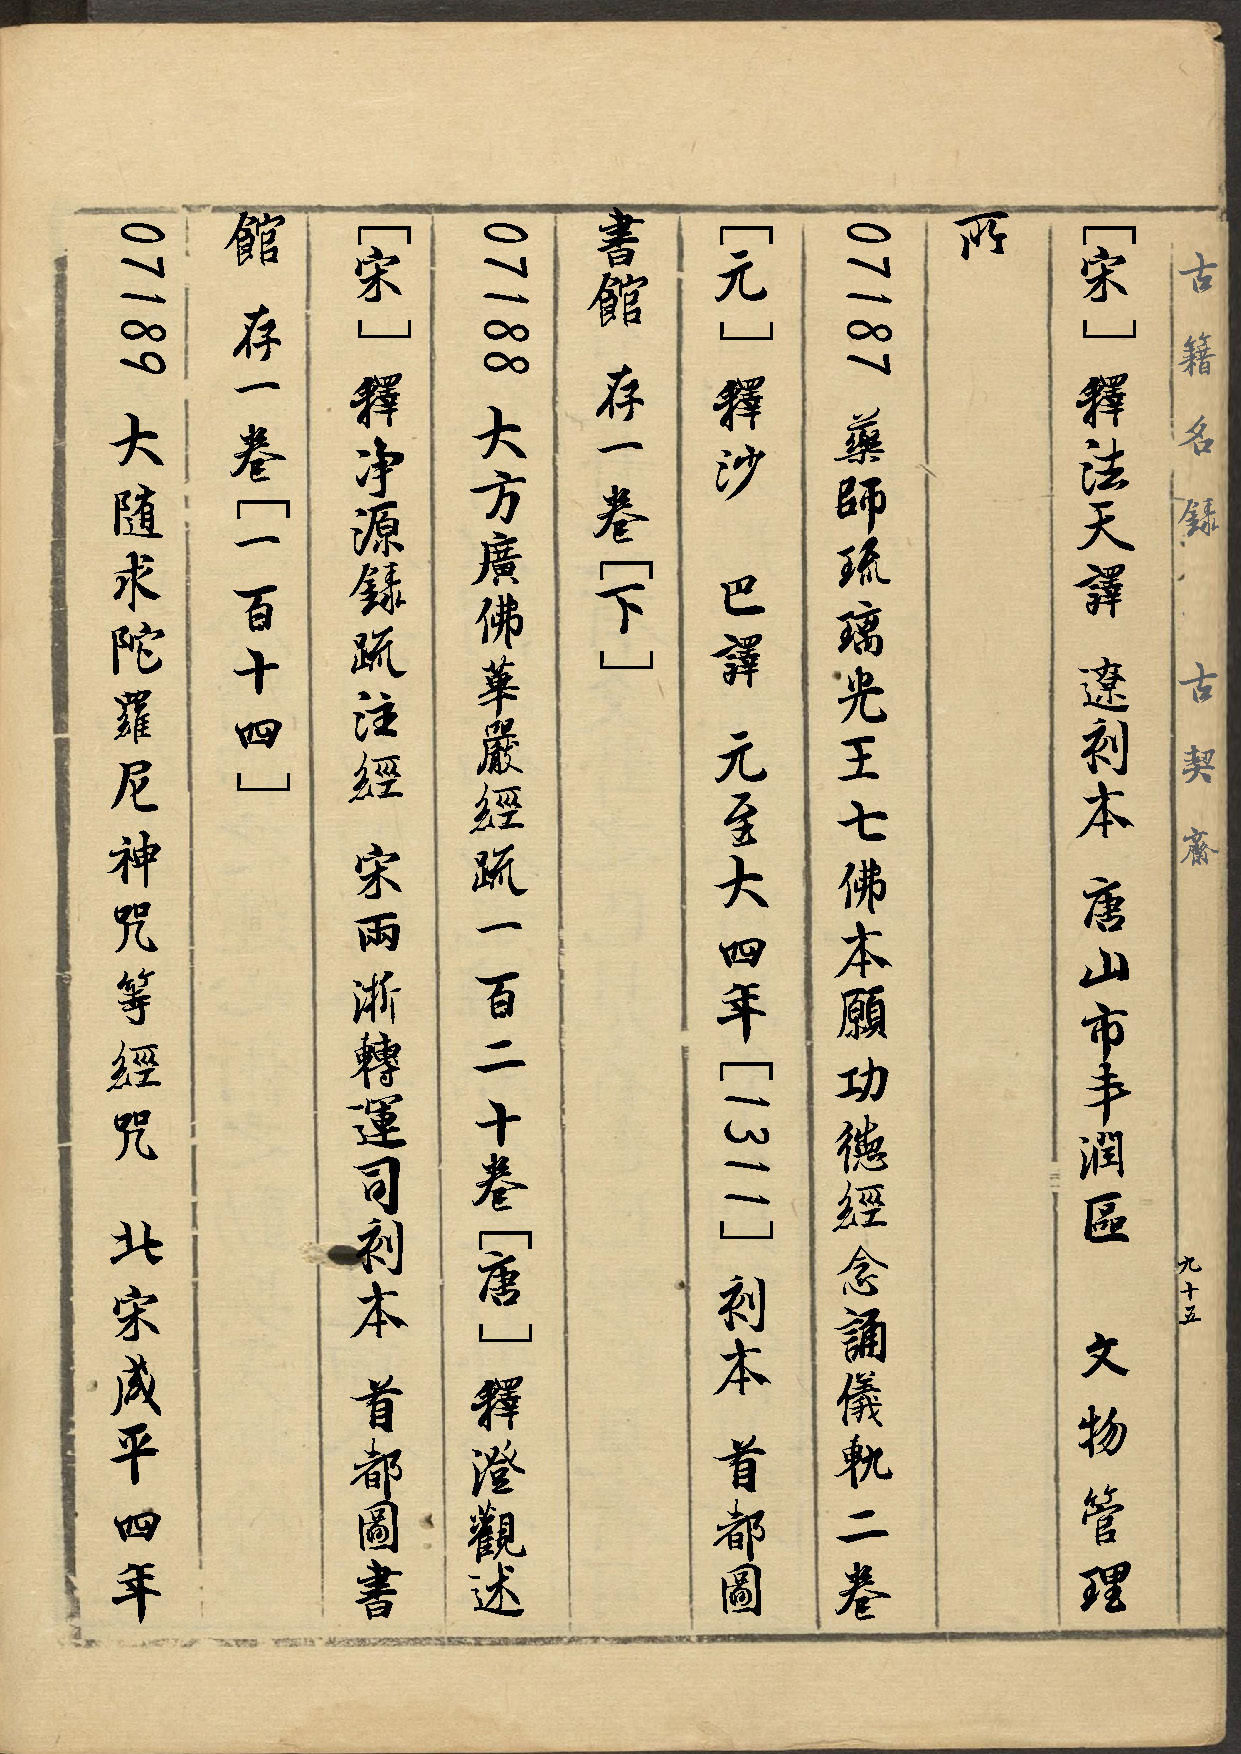 古籍名録 古契齋
九十五
[宋]釋法天譯 遼刻本 唐山市丰潤區 文物管理
所
07187 藥師琉璃光王七佛本願功德經念誦儀軌二卷
[元]釋沙 巴譯 元至大四年[1311]刻本 首都圖
書館 存一卷[下]
07188 大方廣佛華嚴經疏一百二十卷[唐]釋澄觀述
[宋]釋净源録疏注經 宋兩浙轉運司刻本 首都圖書
館 存一卷[一百十四]
07189 大随求陀羅尼神咒等經咒 北宋咸平四年